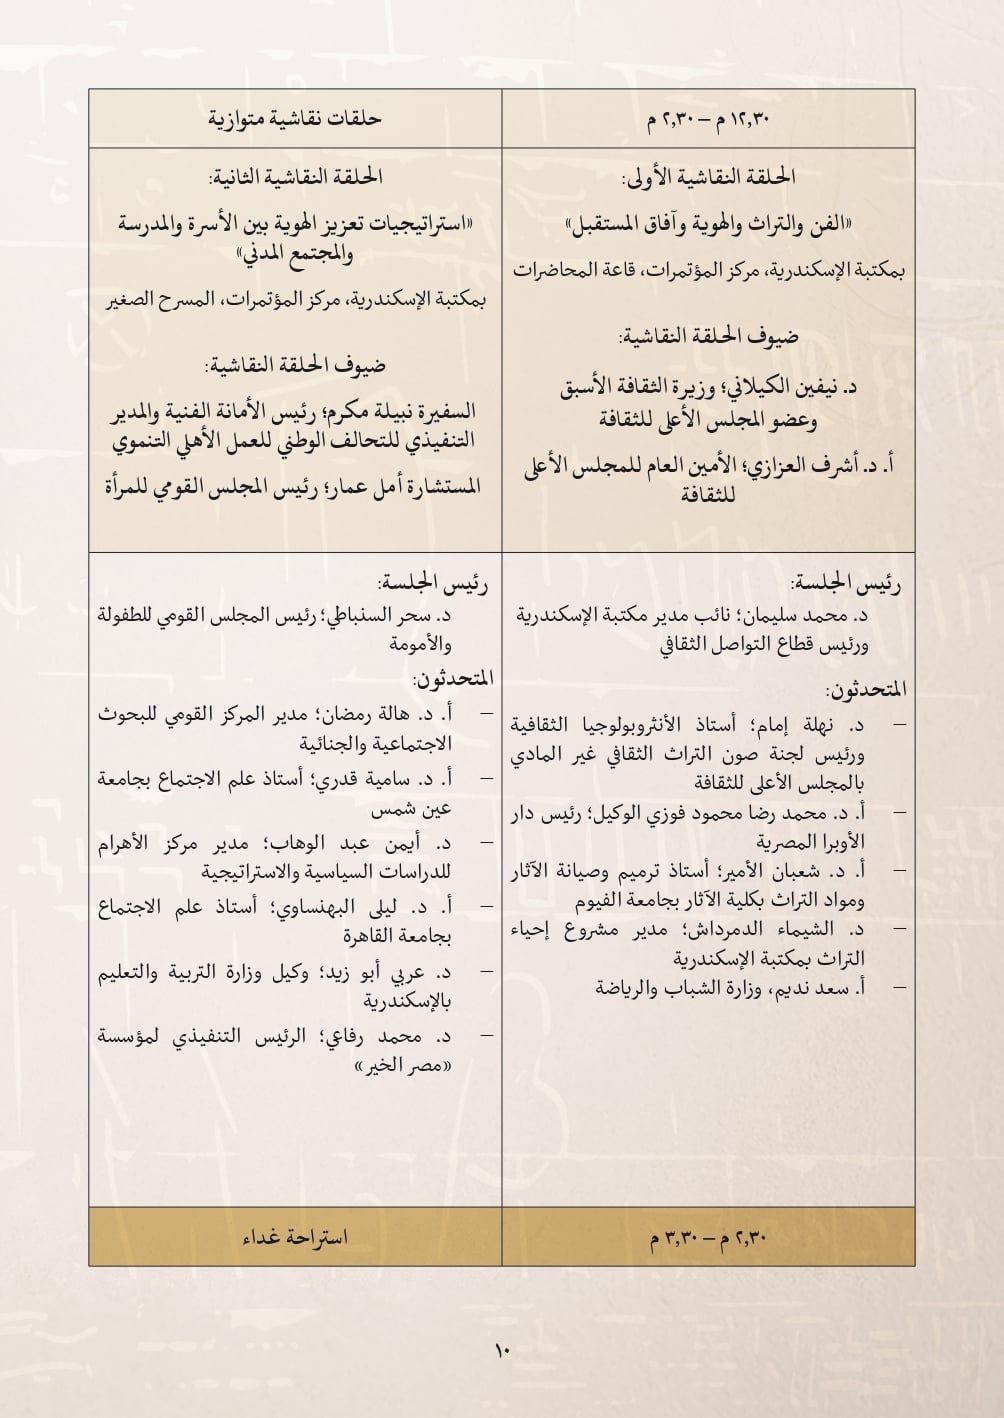 ١٢,٣٠ م – ٢,٣٠ م
حلقات نقاشية متوازية
الحلقة النقاشية الأولى:
«الفن والتراث والهوية وآفاق المستقبل»
بمكتبة الإسكندرية، مركز المؤتمرات، قاعة المحاضرات
ضيوف الحلقة النقاشية:
د. نيفين الكيلاني؛ وزيرة الثقافة الأسبق
وعضو المجلس الأعلى للثقافة
أ. د. أشرف العزازي؛ الأمين العام للمجلس الأعلى
للثقافة
الحلقة النقاشية الثانية:
«استراتيجيات تعزيز الهوية بين الأسرة والمدرسة
والمجتمع المدني»
بمكتبة الإسكندرية، مركز المؤتمرات، المسرح الصغير
ضيوف الحلقة النقاشية:
السفيرة نبيلة مكرم؛ رئيس الأمانة الفنية والمدير
التنفيذي للتحالف الوطني للعمل الأهلي التنموي
المستشارة أمل عمار؛ رئيس المجلس القومي للمرأة
رئيس الجلسة:
د. محمد سليمان؛ نائب مدير مكتبة الإسكندرية
ورئيس قطاع التواصل الثقافي
المتحدثون:
– د. نهلة إمام؛ أستاذ الأنثروبولوجيا الثقافية
ورئيس لجنة صون التراث الثقافي غير المادي
بالمجلس الأعلى للثقافة
– أ. د. محمد رضا محمود فوزي الوكيل؛ رئيس دار
الأوبرا المصرية
– أ. د. شعبان الأمير؛ أستاذ ترميم وصيانة الآثار
ومواد التراث بكلية الآثار بجامعة الفيوم
– د. الشيماء الدمرداش؛ مدير مشروع إحياء
التراث بمكتبة الإسكندرية
– أ. سعد نديم، وزارة الشباب والرياضة
رئيس الجلسة:
د. سحر السنباطي؛ رئيس المجلس القومي للطفولة
والأمومة
المتحدثون:
– أ. د. هالة رمضان؛ مدير المركز القومي للبحوث
الاجتماعية والجنائية
– أ. د. سامية قدري؛ أستاذ علم الاجتماع بجامعة
عين شمس
– د. أيمن عبد الوهاب؛ مدير مركز الأهرام
للدراسات السياسية والاستراتيجية
– أ. د. ليلى البهنساوي؛ أستاذ علم الاجتماع
بجامعة القاهرة
– د. عربي أبو زيد؛ وكيل وزارة التربية والتعليم
بالإسكندرية
– د. محمد رفاعي؛ الرئيس التنفيذي لمؤسسة
«مصر الخير»
٢,٣٠ م – ٣,٣٠ م
استراحة غداء
١٠